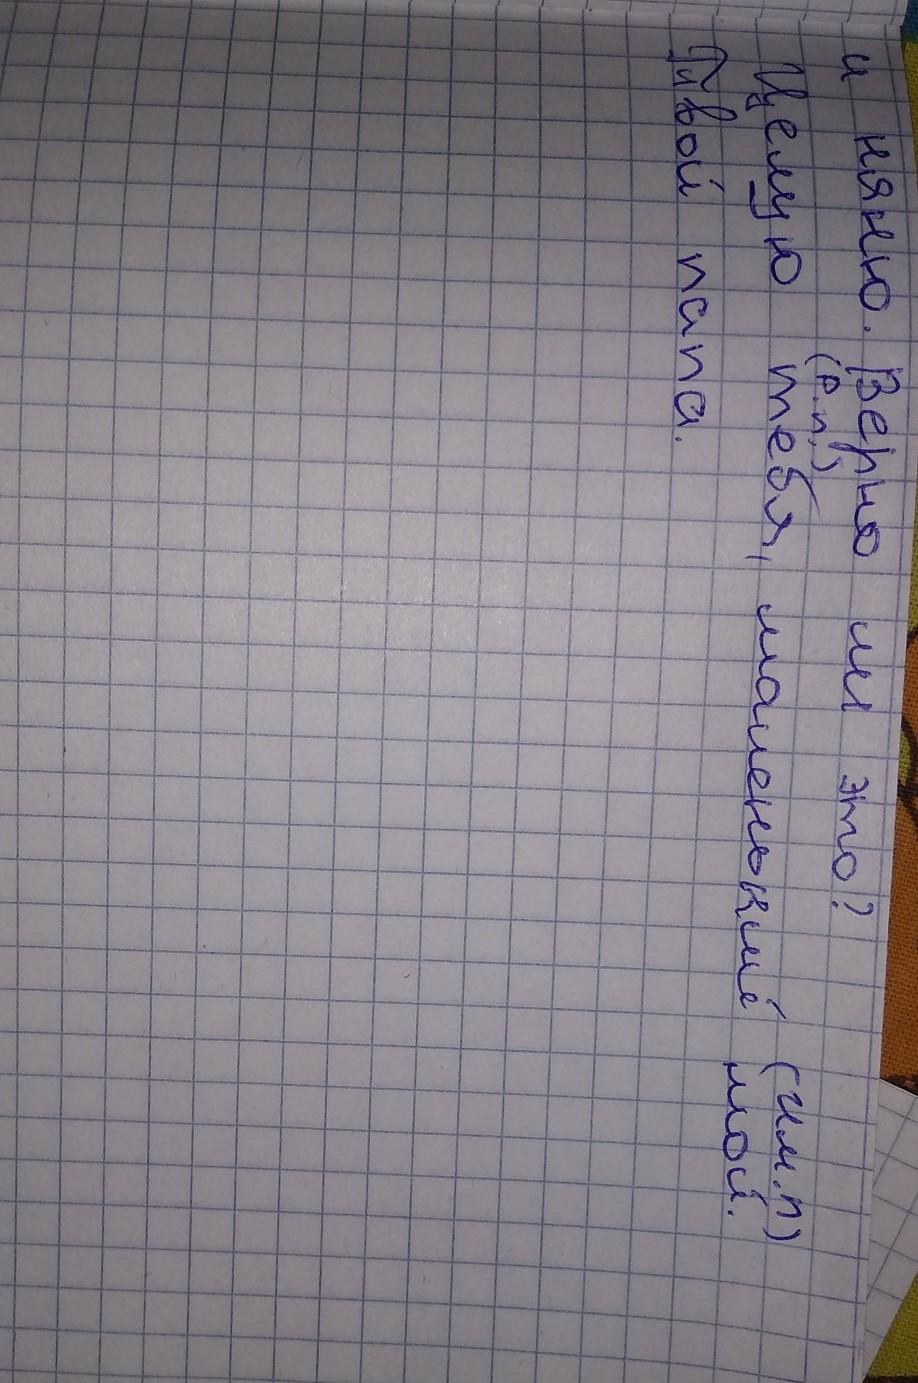 и няню. Верно ли это?
(р.п.) (им.п)
Целую тебя, маленький мой.
Твой папа.